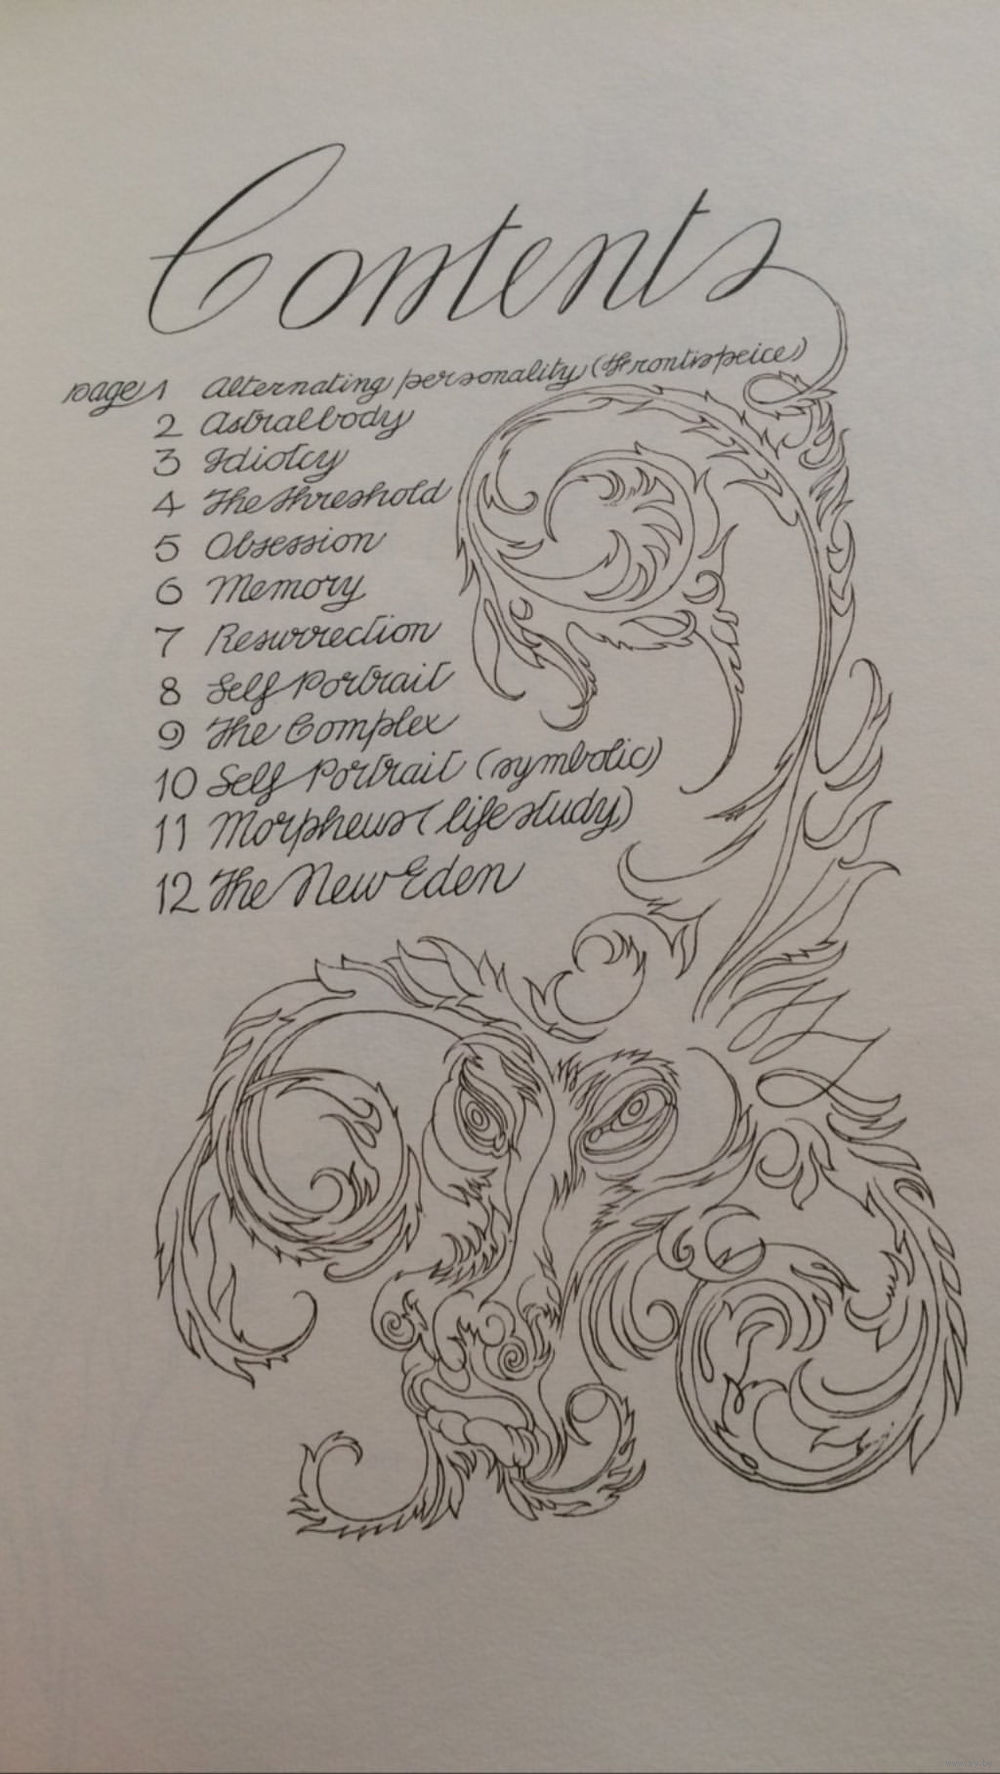 Contents
page 1 Alternating personality (frontispeice)
2 Astral body
3 Idiotcy
4 The Threshold
5 Obsession
6 Memory
7 Resurrection
8 Self Portrait
9 The Complex
10 Self Portrait (symbolic)
11 Morpheus (life study)
12 The New Eden